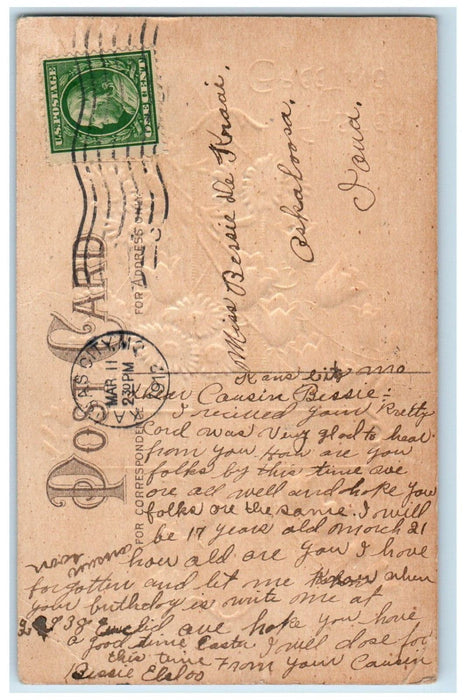 U.S. POSTAGE
ONE CENT
POST CARD
FOR ADDRESS ONLY
FOR CORRESPONDENCE
CITY, MO.
MAR 11
230 PM
1912
Miss Bessie De Kosai.
Oskaloosa.
Iowa.
Kans City Mo
Dear Cousin Bessie:-
I recived your Pretty
Card was Very glad to hear
from you How are you
folks by this time we
are all well and hope you
folks are the same. I will
be 17 years old March 21
how old are you I have
forgotten and let me know when
your birthday is write me at
Euclid ave hope you have
a good time Easter I will close for
this time From your Cousin
Bessie Elsloo
answer
soon